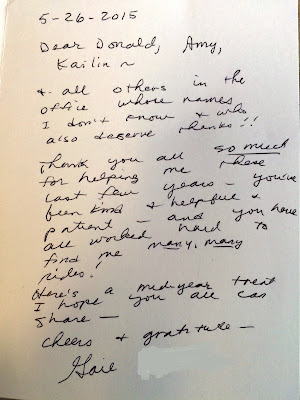 5-26-2015
Dear Donald, Amy,
Kailin ~
& all others in the
office whose names
I don't know & who
also deserve thanks!!
Thank you all so much
for helping me these
last few years – you've
been kind & helpful &
patient – and you have
all worked hard to
find me many, many
rides!
Here's a mid-year treat
I hope you all can
share –
Cheers & gratitude –
Gaie